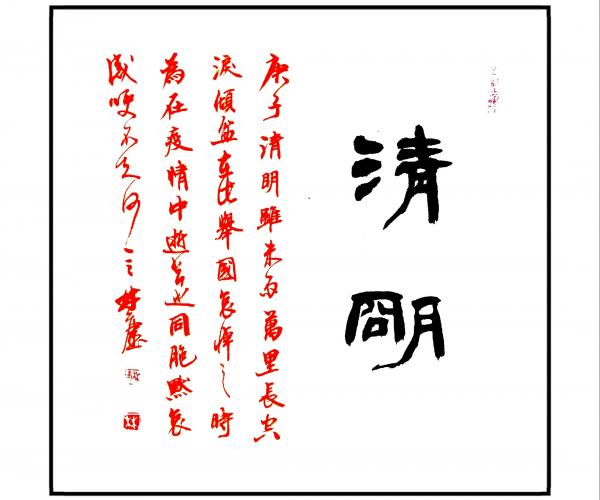 清朙
庚子清明雖未雨萬里長空
淚傾盆在此舉國哀悼之時
為在疫情中逝同胞默哀
感哽不